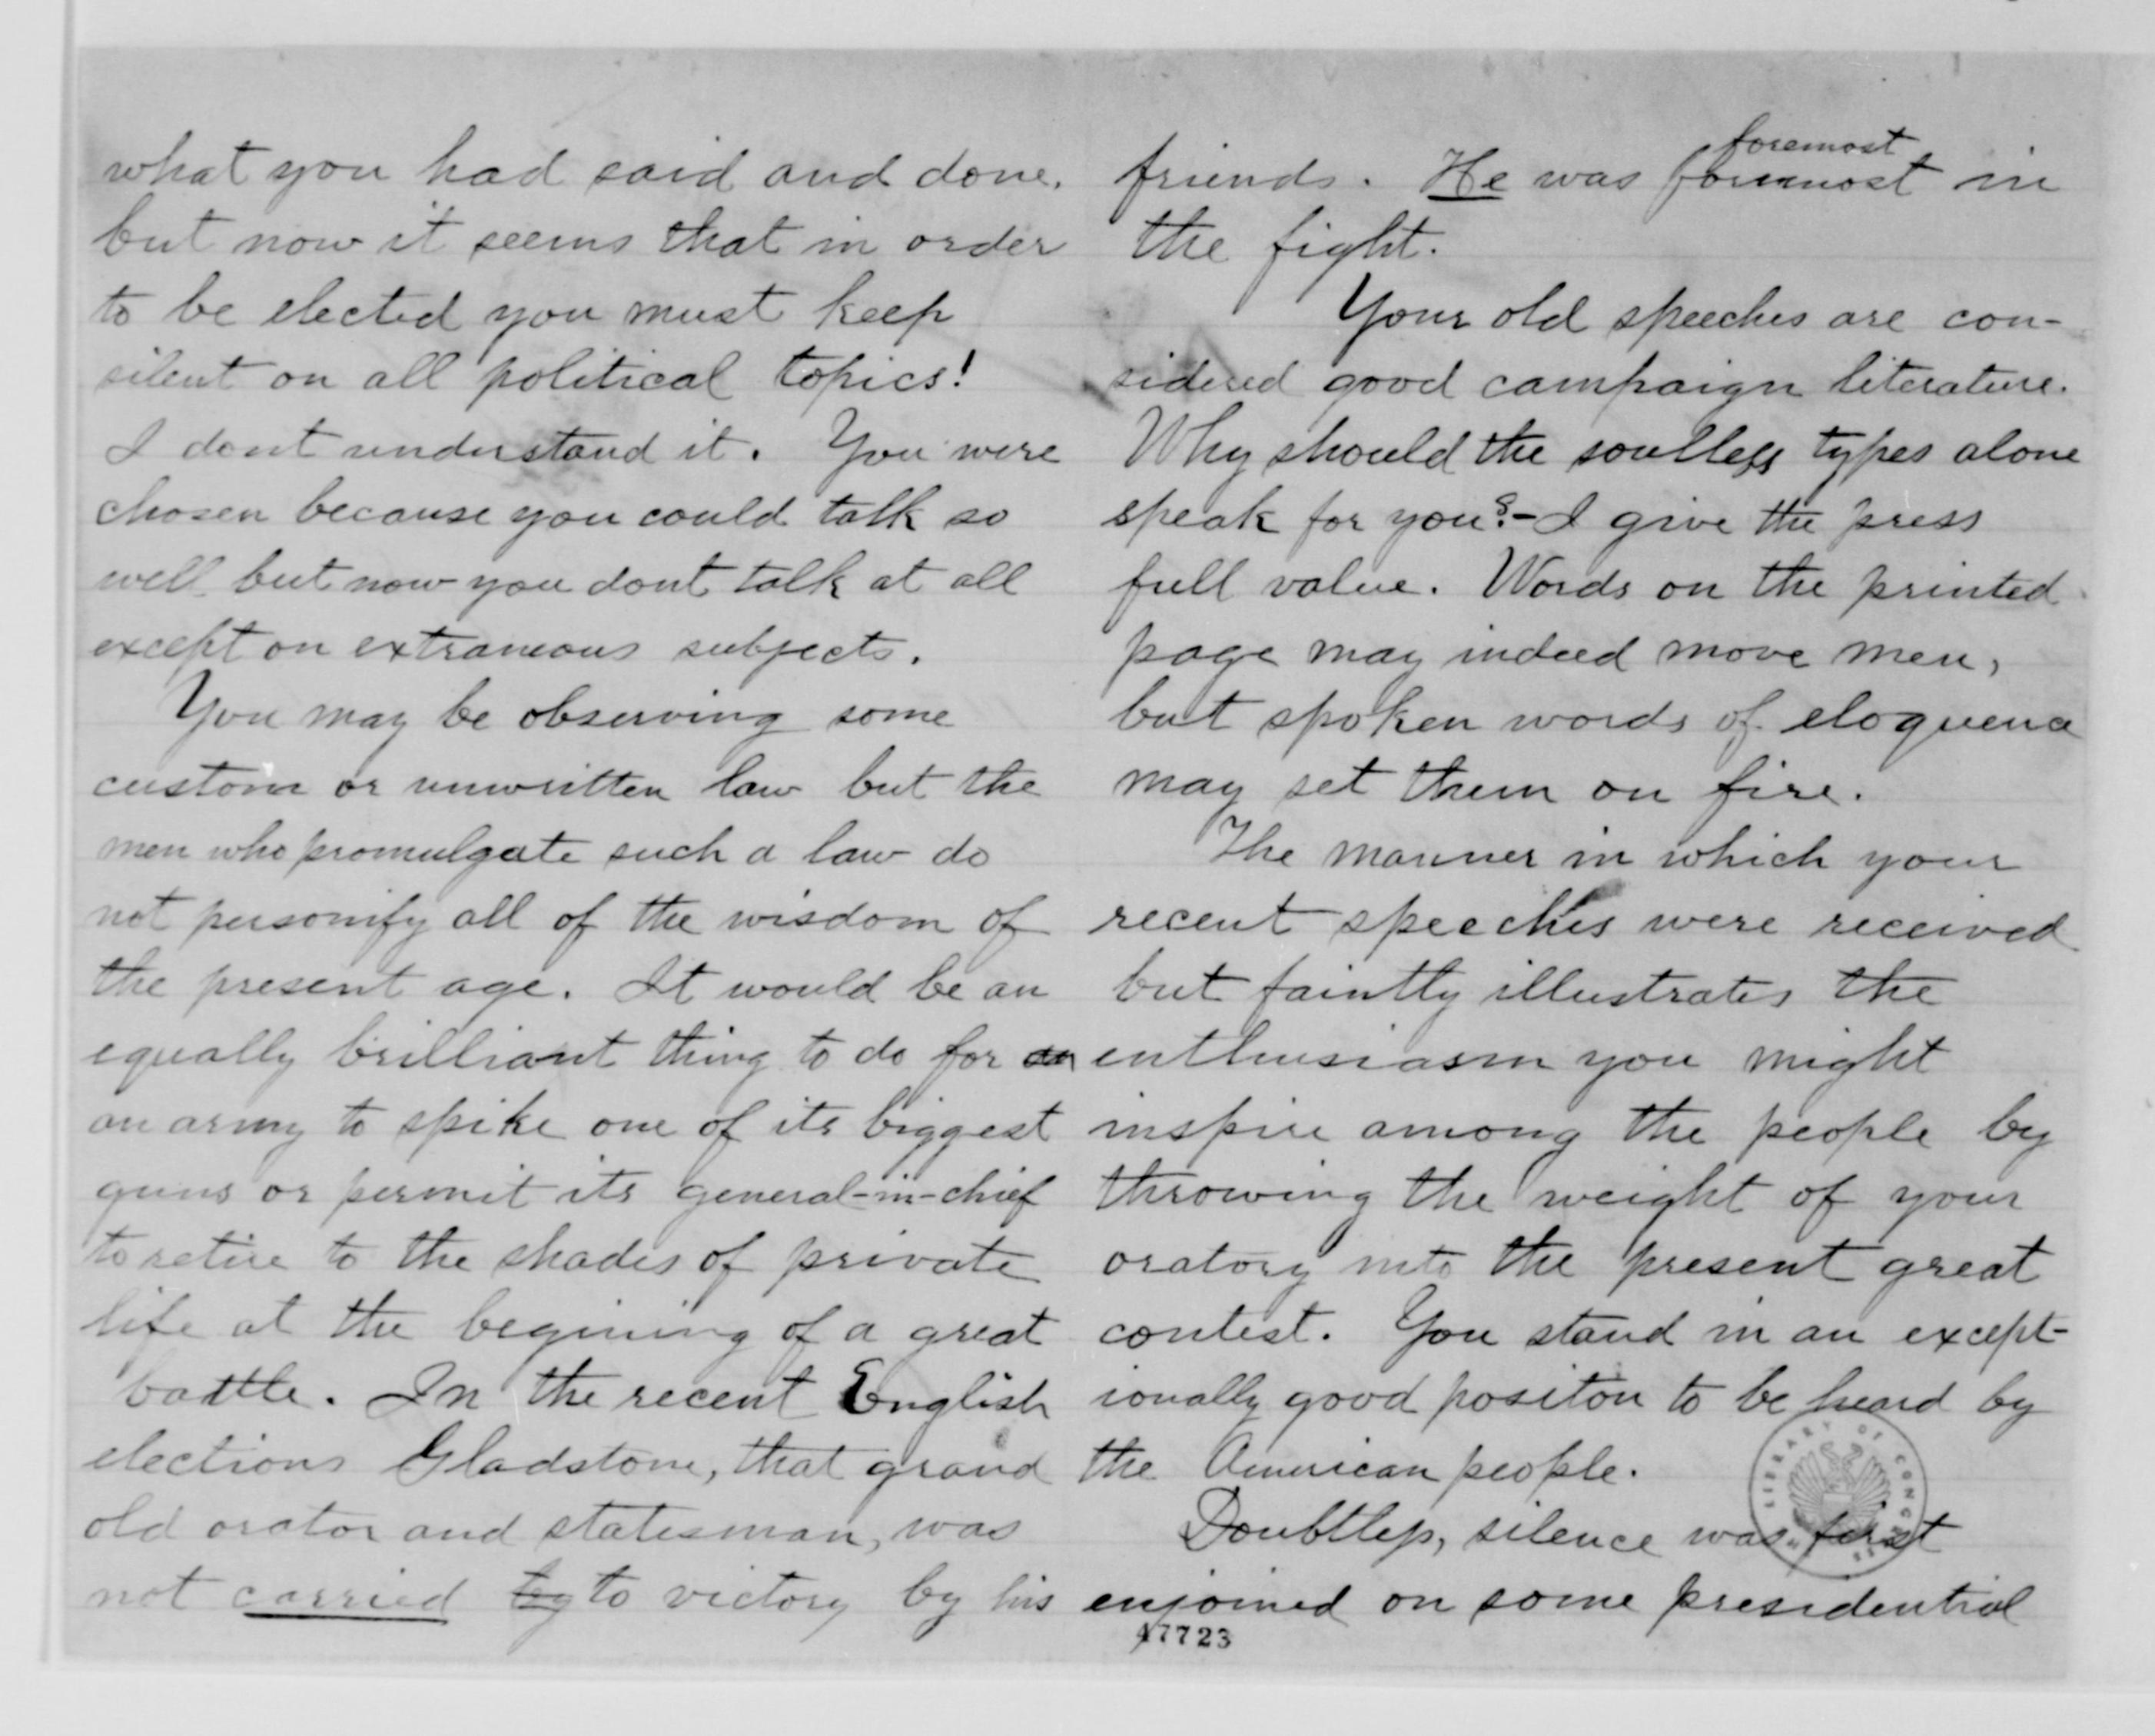 what you had said and done.
but now it seems that in order
to be elected you must keep
silent on all political topics!
I dont understand it. You were
chosen because you could talk so
well but now you dont talk at all
except on extraneous subjects.
You may be observing some
custom or unwritten law but the
men who promulgate such a law do
not personify all of the wisdom of
the present age. It would be an
equally brilliant thing to do for an
an army to spike one of its biggest
guns or permit its general-in-chief
to retire to the shades of private
life at the begining of a great
battle. In the recent English
elections Gladstone, that grand
old orator and statesman, was
not carried by to victory by his
friends. He was foremost foremost in
the fight.
Your old speeches are con-
sidered good campaign literature.
Why should the soulless types alone
speak for you?-I give the press
full value. Words on the printed
page may indeed move men,
but spoken words of eloquence
may set them on fire.
The manner in which your
recent speeches were received
but faintly illustrates the
enthusiasm you might
inspire among the people by
throwing the weight of your
oratory into the present great
contest. You stand in an except-
ionally good positon to be heard by
the American people.
Doubtless, silence was first
enjoined on some presidential
47723
LIBRARY OF CONGRESS